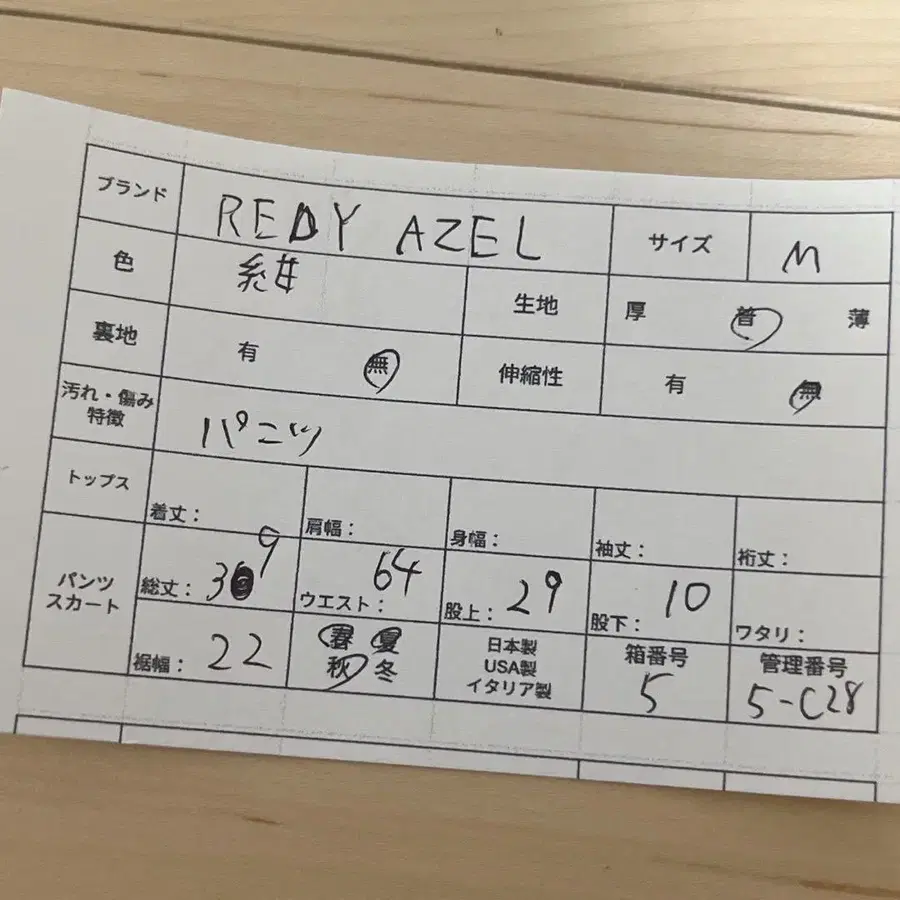 ブランド REDY AZEL サイズ M
色 紺 生地 厚 普 薄
裏地 有 無 伸縮性 有 無
汚れ・傷み
特徴 パンツ
トップス 着丈: 肩幅: 身幅: 袖丈: 裄丈:
パンツ
スカート 総丈: 39 ウエスト: 64 股上: 29 股下: 10 ワタリ:
裾幅: 22
春 夏
秋 冬
日本製
USA製
イタリア製
箱番号
5
管理番号
5-C28